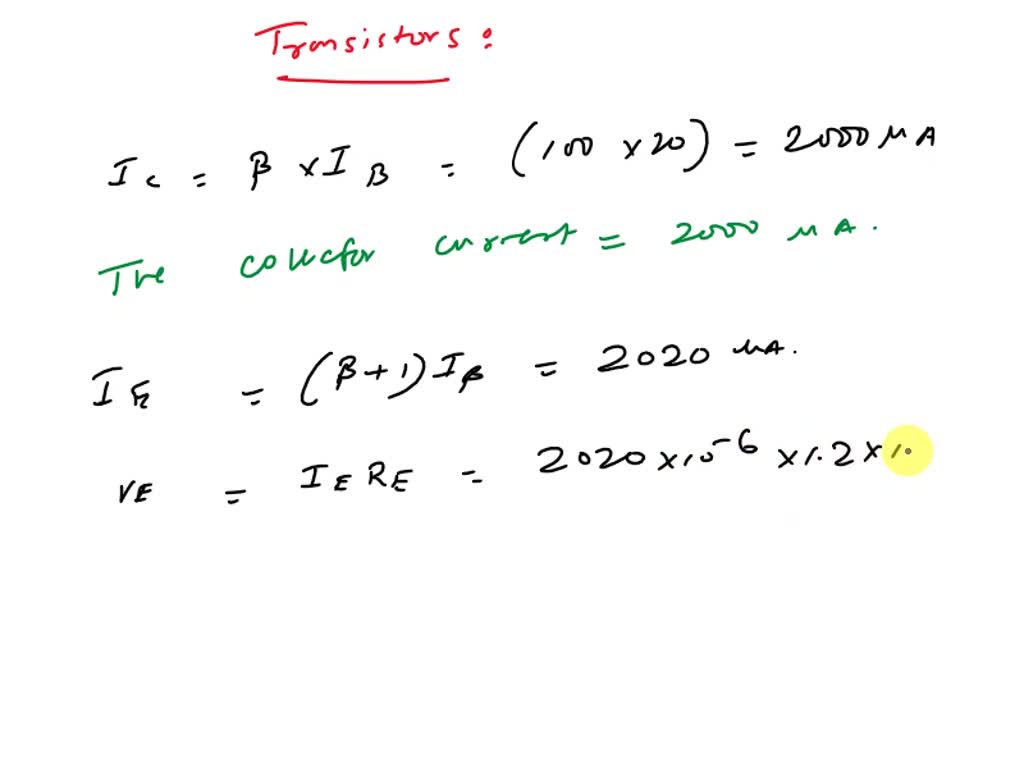 Transistors:
I_C = β × I_B = (100 × 20) = 2000 μA
The collector current = 2000 μA.
I_E = (β+1) I_B = 2020 μA.
VE = I_E R_E = 2020 × 10^-6 × 1.2 × 1